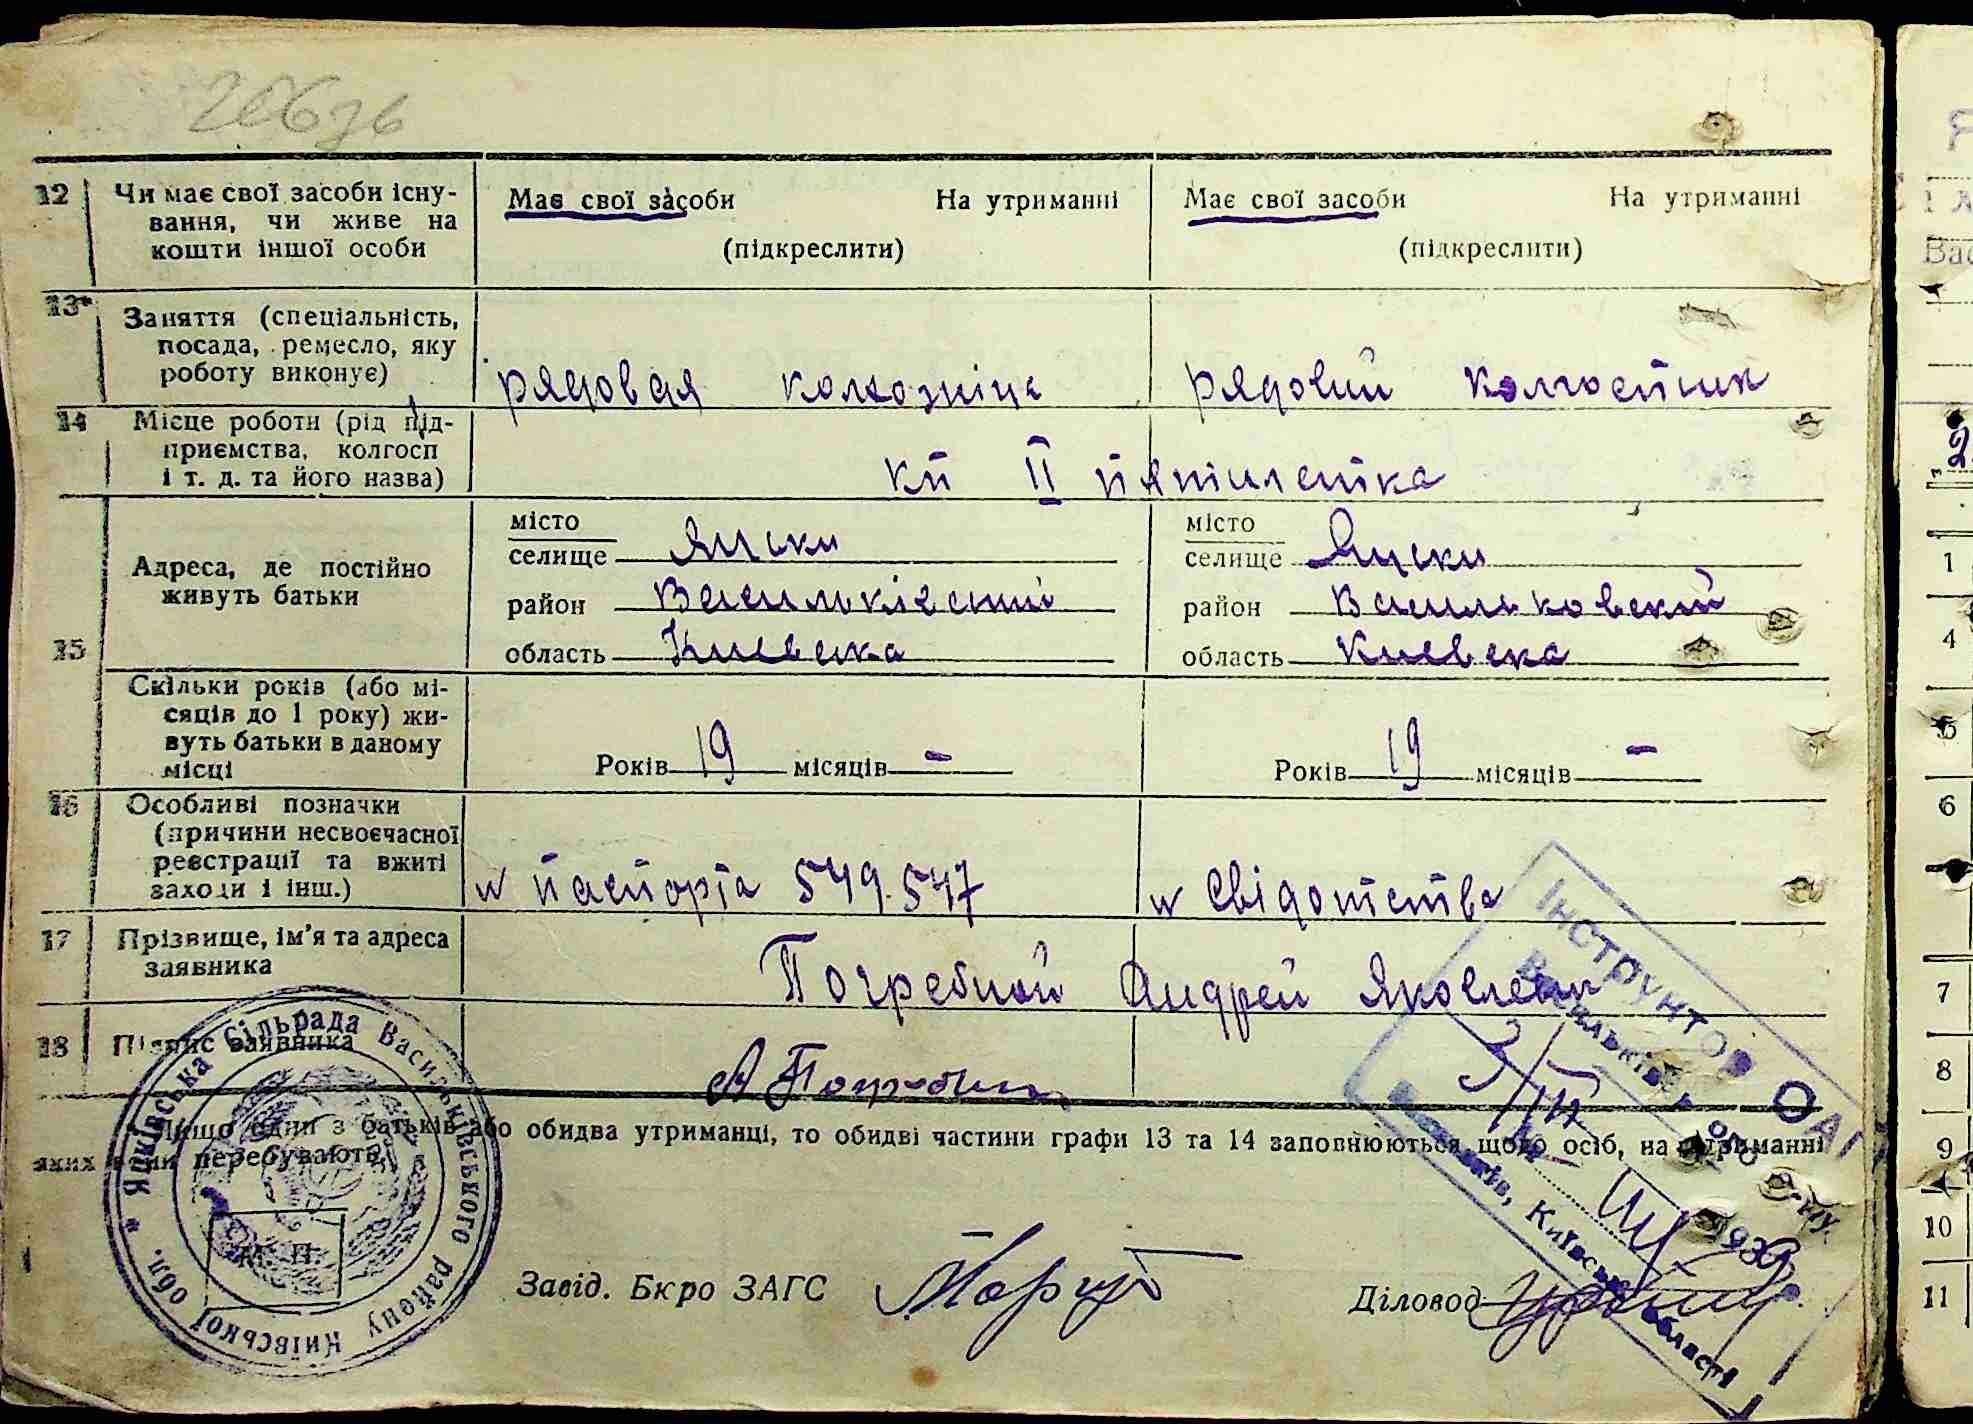 12 Чи має свої засоби існу-
вання, чи живе на
кошти іншої особи
Має свої засоби На утриманні
(підкреслити)
Має свої засоби На утриманні
(підкреслити)
13 Заняття (спеціальність,
посада, ремесло, яку
роботу виконує)
рядовая колхозніця
рядовий колгоспник
14 Місце роботи (рід під-
приємства, колгосп
і т. д. та його назва)
кп II пятилетка
15 Адреса, де постійно
живуть батьки
місто
селище Яцьки
район Васильківський
область Киевска
місто
селище Яцьки
район Васильковский
область Киевска
Скільки років (або мі-
сяців до 1 року) жи-
вуть батьки в даному
місці
Років 19 місяців -
Років 19 місяців -
16 Особливі позначки
(причини несвоєчасної
реєстрації та вжиті
заходи і інш.)
паспорта 549.547
Свідотства
17 Прізвище, ім'я та адреса
заявника
Погребной Андрей Яковлевич
18 Підпис заявника
Якщо один з батьків або обидва утриманці, то обидві частини графи 13 та 14 заповнюються щодо осіб, на утриманні
яких вони перебувають.
Завід. Бюро ЗАГС
Діловод
Яцківська Сільрада Васильківського району Київської обл. *
М. П.
ІНСТРУКТОР ОАГС
Васильків, Київської області
1939
1
4
5
6
7
8
9
10
11